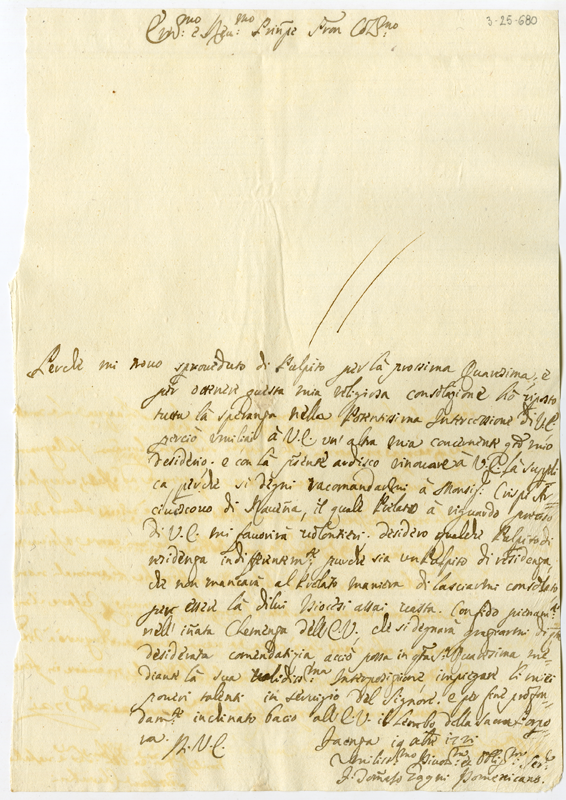 3-25-680
Em:mo e Reu:mo Prin̄pe Pron Col:mo
Perche mi trouo sproueduto di Pulpito per là prossima Quaresima, e
per ottenere questa mia religiosa consolazione hò riposto
tutta là speranza nella Potentissima Intercessione di V.E.
perciò umiliai à V.E. un' altra mia concernente q:to mio
desiderio. e con là p̄sente ardisco rinouare à V.E. là suppli
ca perche si degni racomandarmi à Monsig: Crispi Ar
ciuescouo di Rauēna, il quale Prelato à riguardo
di V.E. mi fauorirà uolontieri. desidero qualche Pulpito di
residenza indifferentem:te purche sia un Pulpito di residenza,
che non mancarà al Prelato maniera di lasciarmi consolato
per essere là dilui Diocesi assai uasta. Confido pienam:te
nell' in̄ata Clemenza dell' E.V. che si degnarà graziarmi di
desiderata comendatizia acciò possa in q:sta Quaresima me-
diante là sua ualidiss:ma Interposizione impiegare li miei
poueri talenti in seruizio del Signore. e per fine profon-
dam:te inclinato bacio all' E.V. il lembo della sacra Porpo-
ra.
D.V.E. Faenza 19 1721
Umiliss:mo Diuot: ed Obl:mo Ser:
F. Tomaso Domenicano.